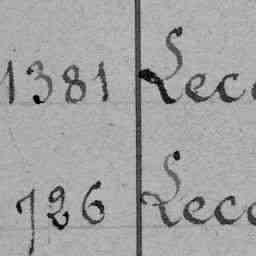 1381 Leco
726 Leco